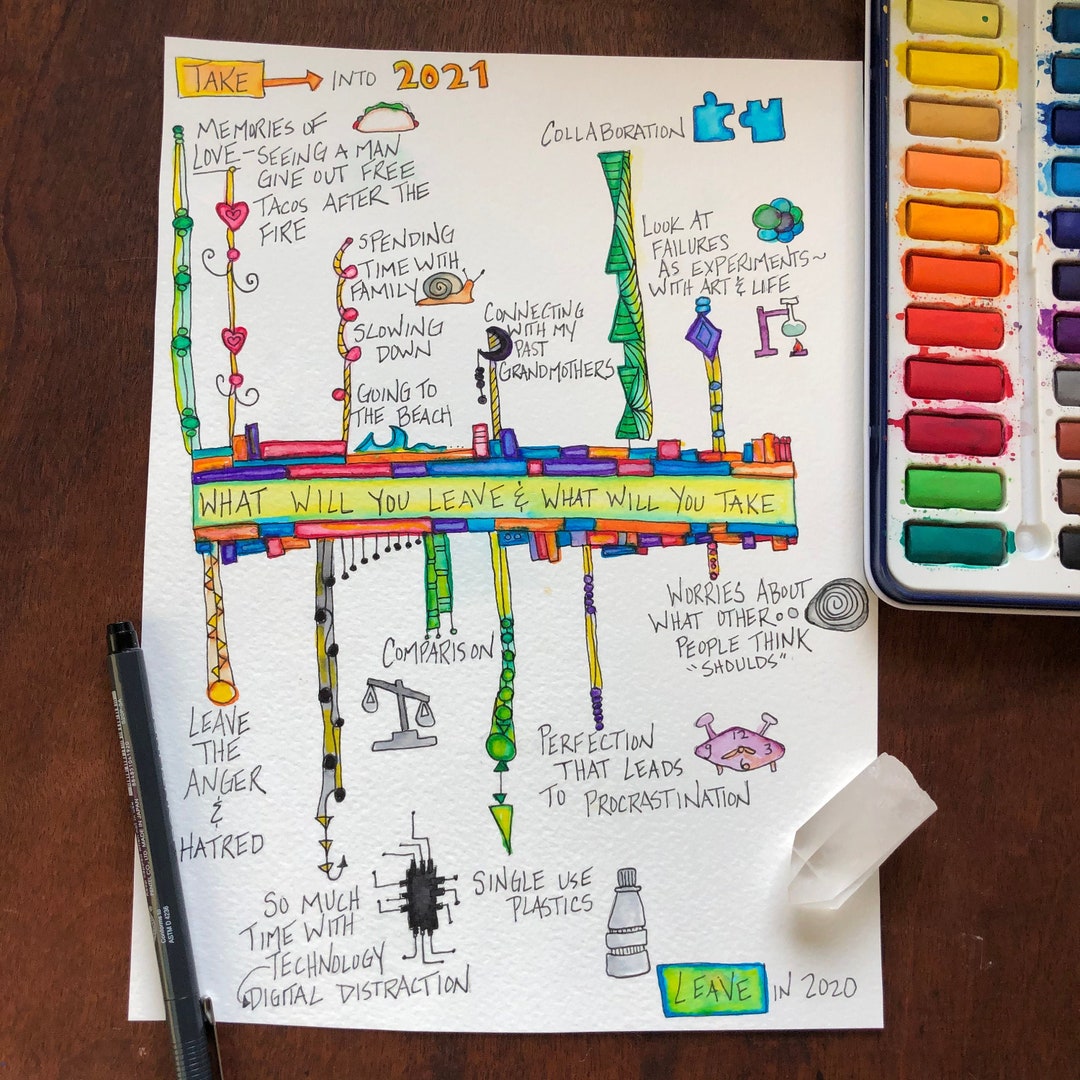 TAKE → INTO 2021
MEMORIES OF
LOVE - SEEING A MAN
GIVE OUT FREE
TACOS AFTER THE
FIRE
SPENDING
TIME WITH
FAMILY
SLOWING
DOWN
GOING TO
THE BEACH
CONNECTING
WITH MY
PAST
GRANDMOTHERS
COLLABORATION
LOOK AT
FAILURES
AS EXPERIMENTS~
WITH ART & LIFE
WHAT WILL YOU LEAVE & WHAT WILL YOU TAKE
LEAVE
THE
ANGER
&
HATRED
SO MUCH
TIME WITH
TECHNOLOGY
DIGITAL DISTRACTION
COMPARISON
SINGLE USE
PLASTICS
PERFECTION
THAT LEADS
TO PROCRASTINATION
12
9 3
WORRIES ABOUT
WHAT OTHER
PEOPLE THINK
"SHOULDS"
LEAVE IN 2020